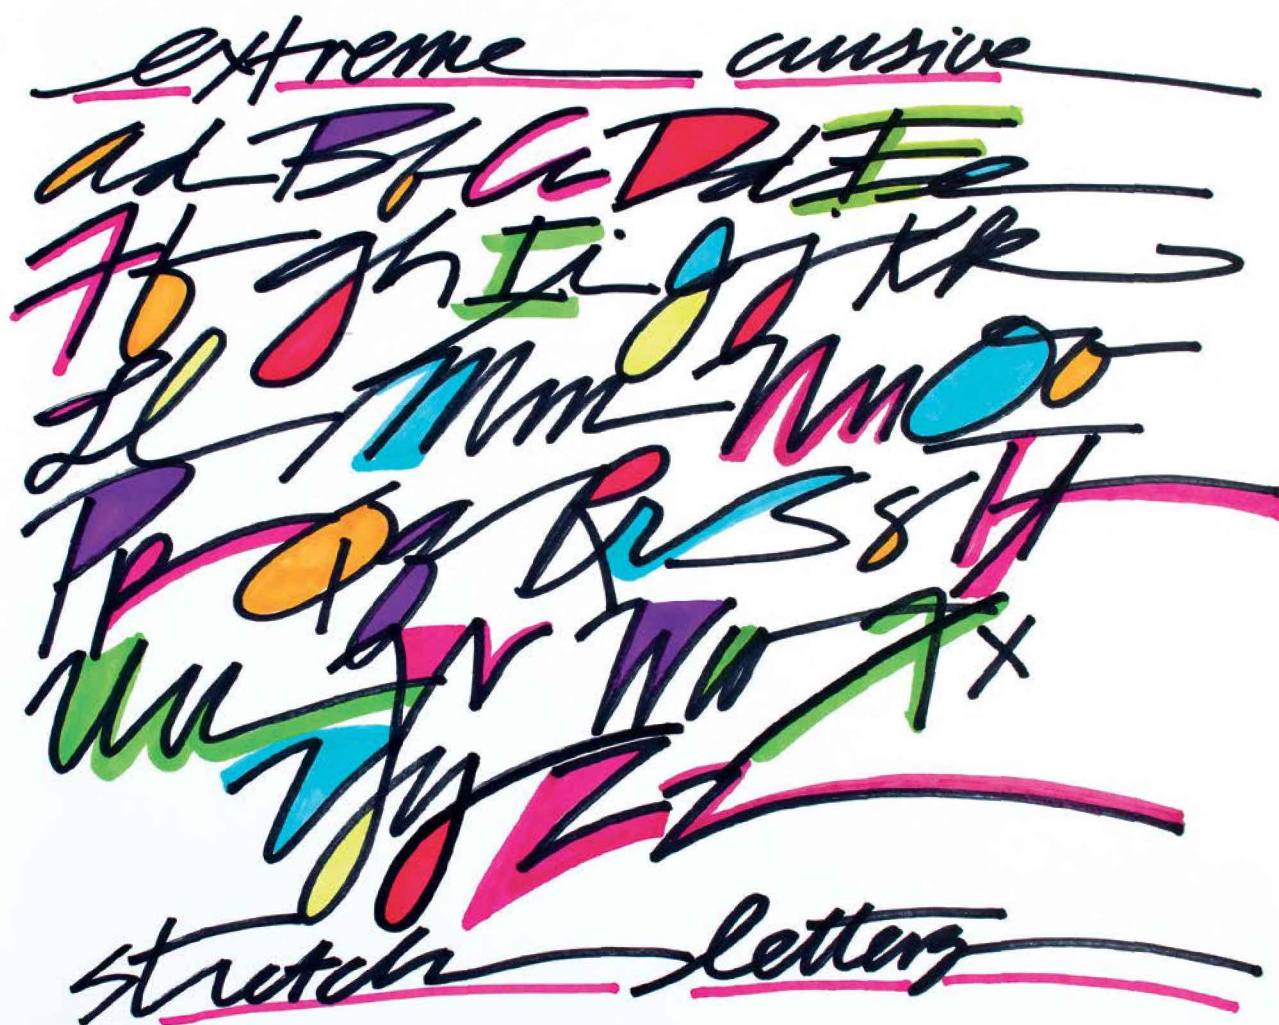 extreme cursive
Aa Bb Cc Dd Ee
Ff gh Ii Jj Kk
Ll Mm Nn Oo
Pp Qq Rr Ss Tt
Uu Vv Ww Xx
Yy Zz
stretch letters